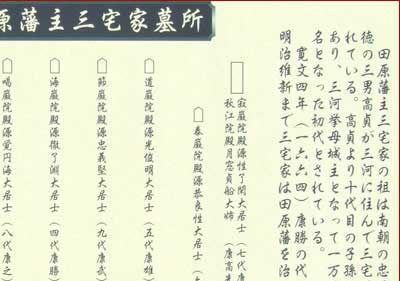 原藩主三宅家墓所
田原藩主三宅家の祖は南朝の忠
徳の三男高貞が三河に住んで三宅
れている。高貞より十代目の子孫
あり、三河挙母城主となって一万
名となった初代とされている。
寛文四年(一六六四)康勝の代
明治維新まで三宅家は田原藩を治
寂巌院殿源性了閑大居士(七代康
秋江院殿月窓貞船大姉(康高
泰巌院殿源恭良性大居士
道巌院殿源光位明大居士(五代康雄)
節巌院殿源忠義堅大居士(九代康武)
海巌院殿源徹了渊大居士(四代康勝)
喝巌院殿源覚円海大居士(八代康之)